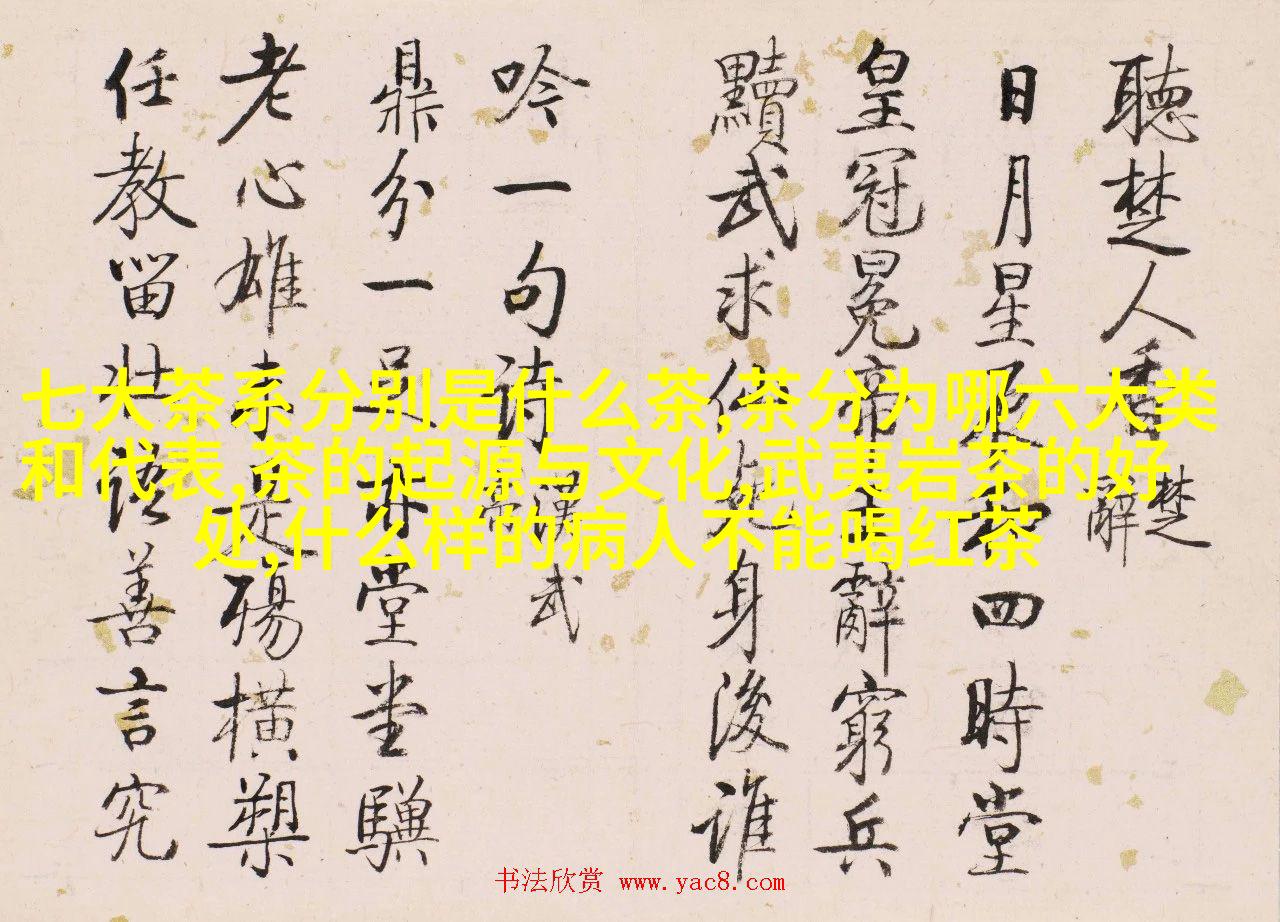 聽楚人香楚辭
日月星辰和四時堂
皇冠冕帝王辭窮兵
黷武求仙死身後誰
吟一句詩漢武帝
鼎分一足亦堂堂驥
老心雄未是殤橫槊
任教留壯語善言究
七大茶系分别是什么茶,茶分为哪六大类
和代表,茶的起源与文化,武夷岩茶的好
处,什么样的病人不能喝红茶
书法欣赏 www.yac8.com